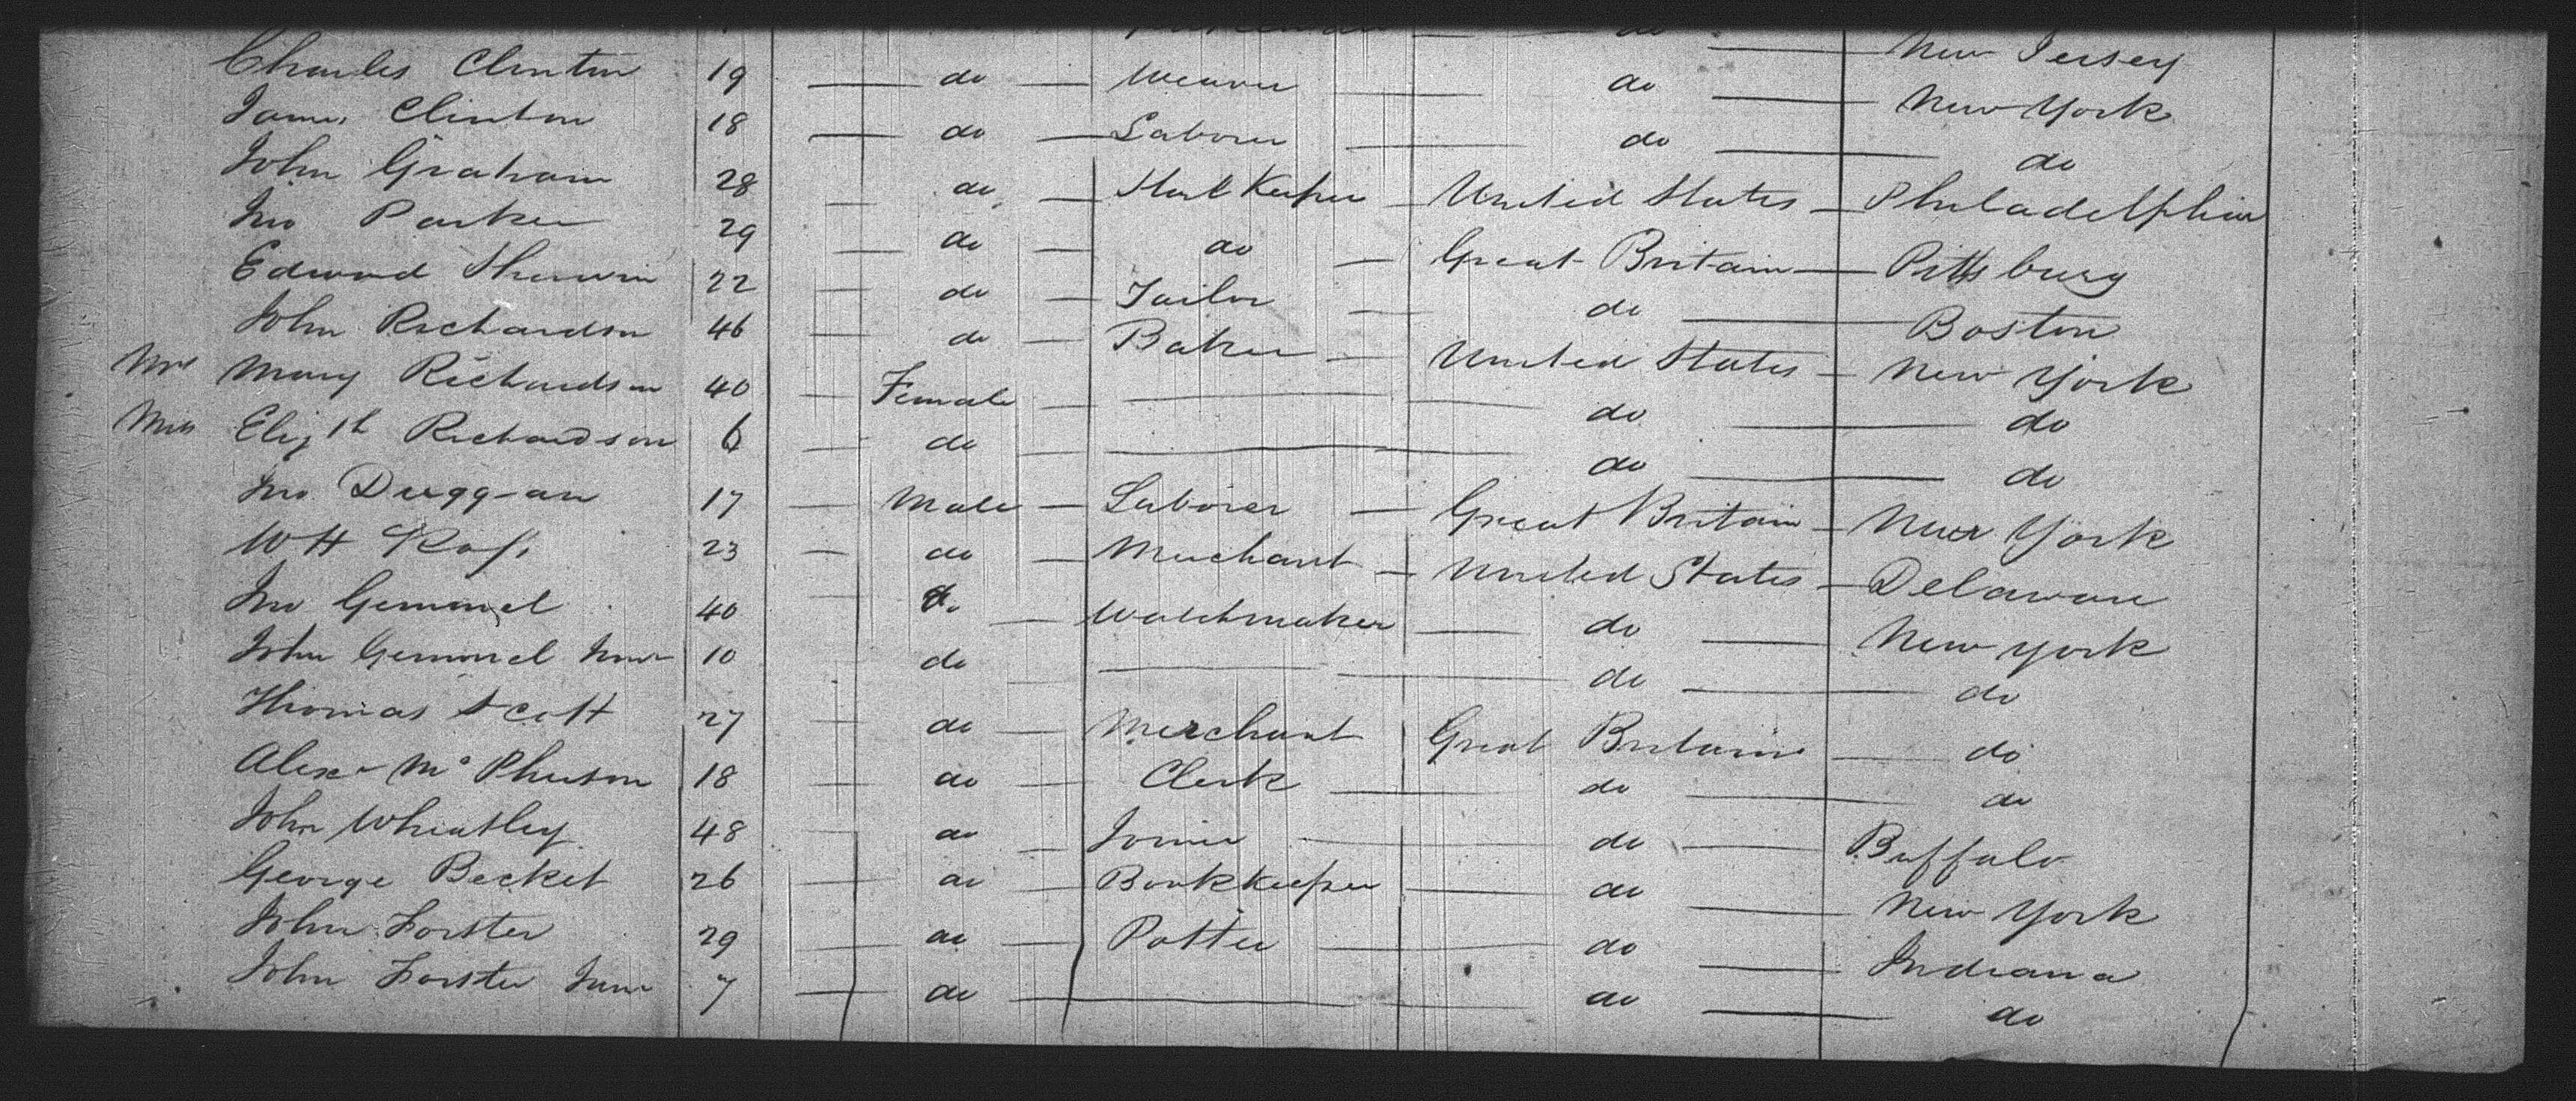 do New Jersey
Charles Clinton 19 do Weaver do New York
James Clinton 18 do Laborer do do
John Graham 28 do Store Keeper United States Philadelphia
Jno Parker 29 do do Great Britain Pittsburg
Edward Sherwin 22 do Tailor do Boston
John Richardson 46 do Baker United States New York
Mrs Mary Richardson 40 Female do do
Miss Elizth Richardson 6 do do do
Jno Duggan 17 Male Laborer Great Britain New York
W H Ross 23 do Merchant United States Delaware
Jno Gemmel 40 do Watchmaker do New York
John Gemmel Junr 10 do do do
Thomas Scott 27 do Merchant Great Britain do
Alexr McPherson 18 do Clerk do do
John Wheatley 48 do Joiner do Buffalo
George Becket 26 do Bookkeeper do New York
John Forster 29 do Potter do Indiana
John Forster Junr 7 do do do